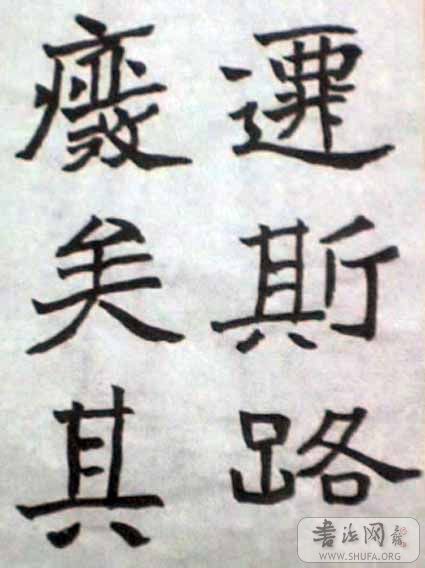 遷斯路
癈矣其
書法网
WWW.SHUFA.ORG